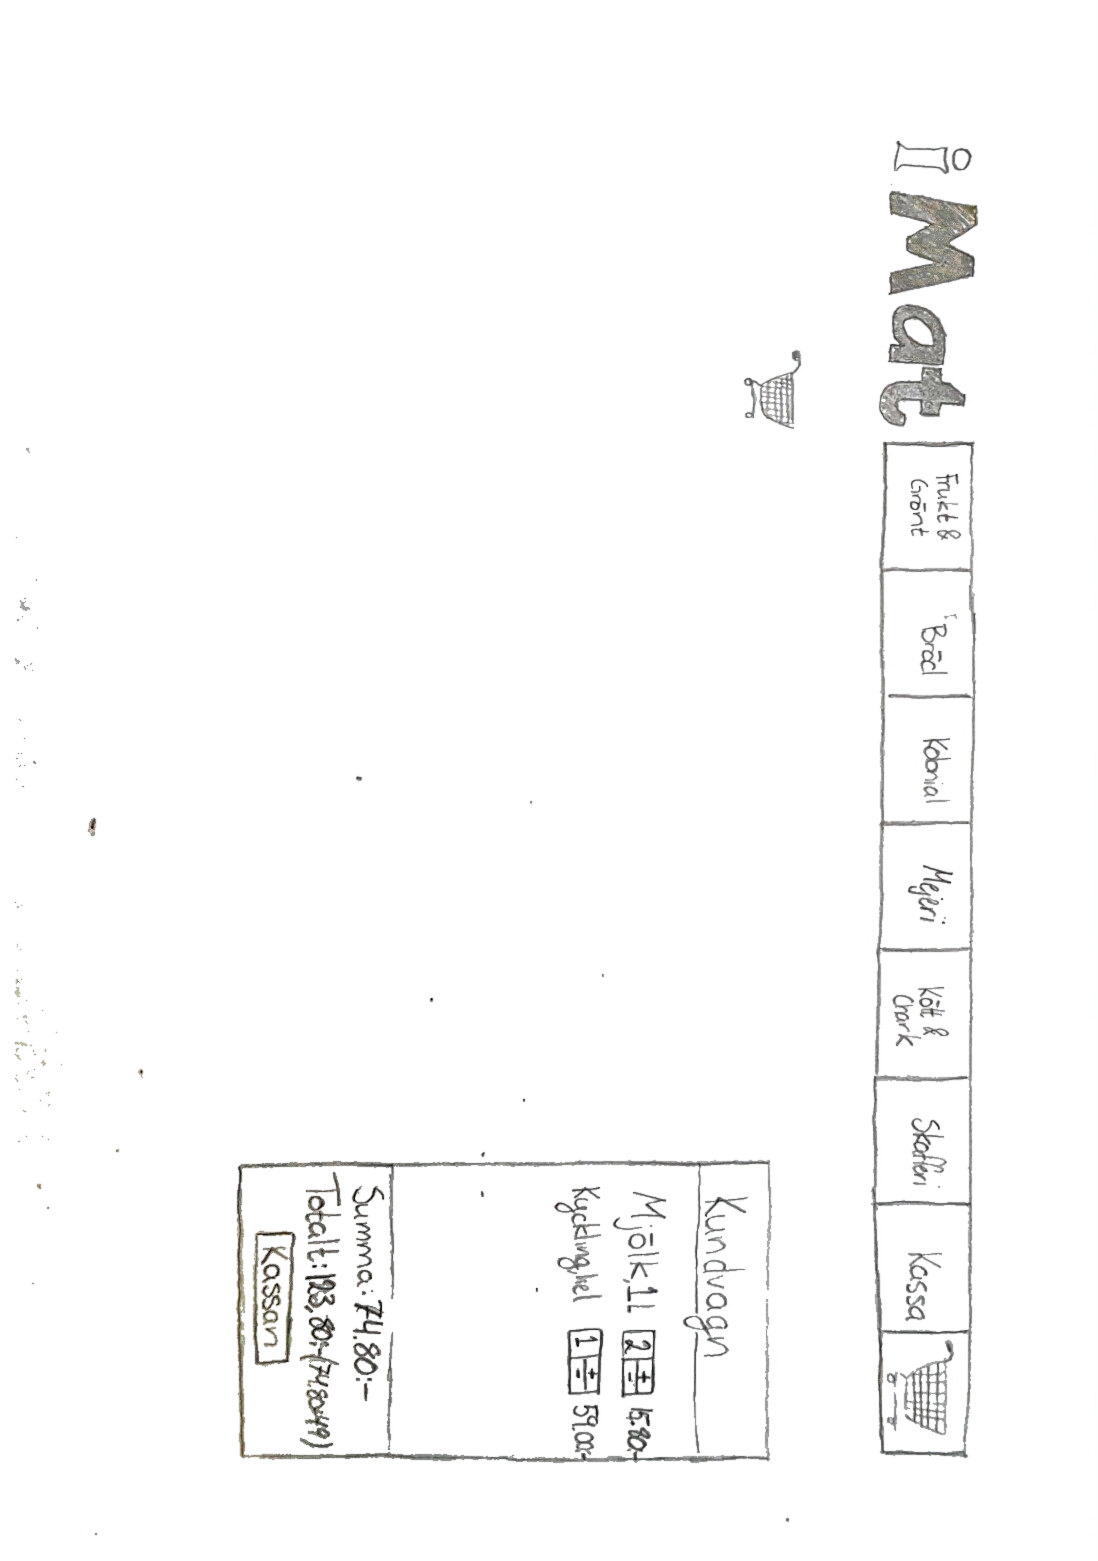 iMat
Frukt &
Grönt
Bröd
Kolonial
Mejeri
Kött &
Chark
Skafferi
Kassa
Kundvagn
Mjölk, 1L 2 + - 15.80:-
Kyckling, hel 1 + - 59.00:-
Summa: 74.80:-
Totalt: 123,80:-(74.80+49)
Kassan